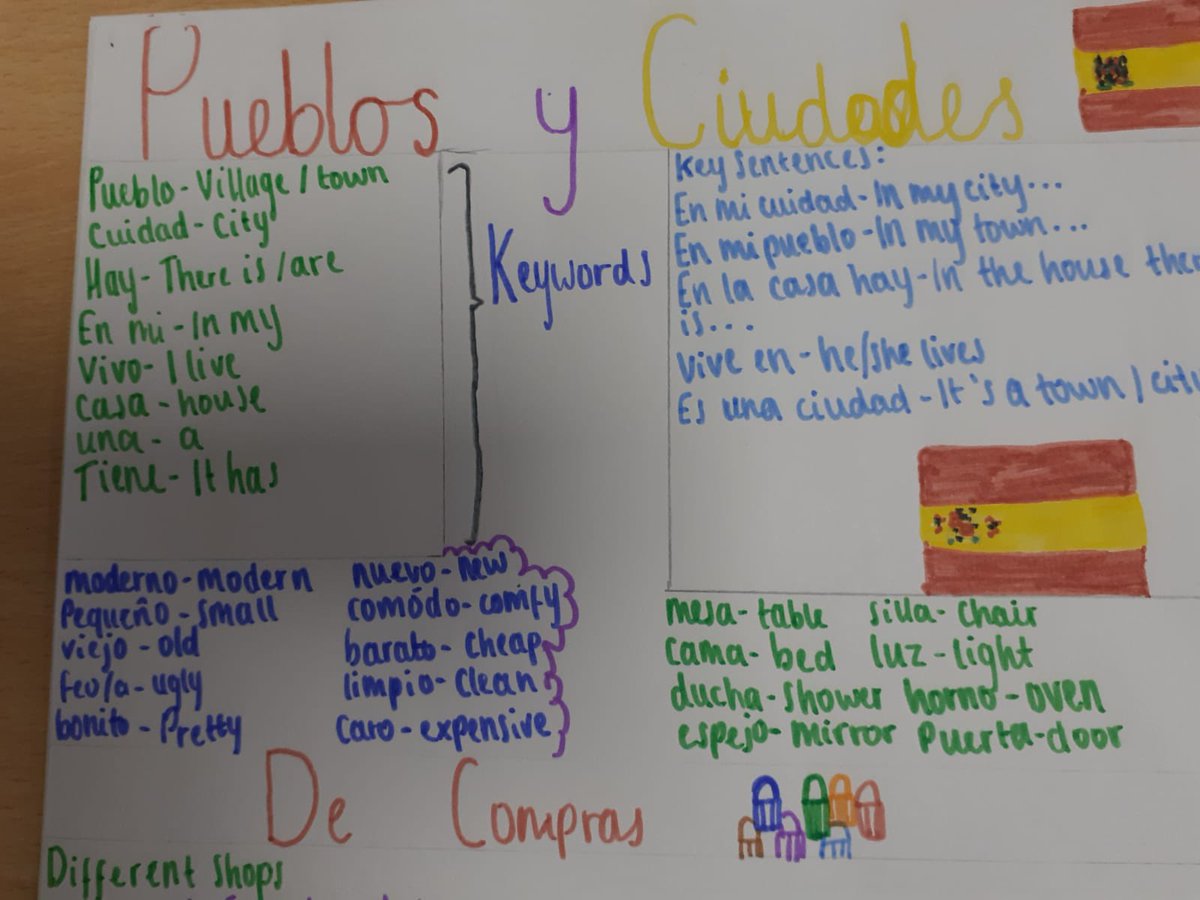 Pueblos y Ciudades
Pueblo - Village / town
Cuidad - City
Hay - There is / are
En mi - In my
Vivo - I live
casa - house
una - a
Tiene - It has
Keywords
Key sentences:
En mi cuidad - In my city...
En mi pueblo - In my town...
En la casa hay - In the house
is...
Vive en - he/she lives
Es una ciudad - It's a town /
moderno - modern
Pequeño - small
viejo - old
feo/a - ugly
bonito - Pretty
nuevo - new
comódo - comfy
barato - cheap
limpio - clean
caro - expensive
mesa - table silla - chair
cama - bed luz - light
ducha - shower horno - oven
espejo - mirror Puerta - door
De Compras
Different shops